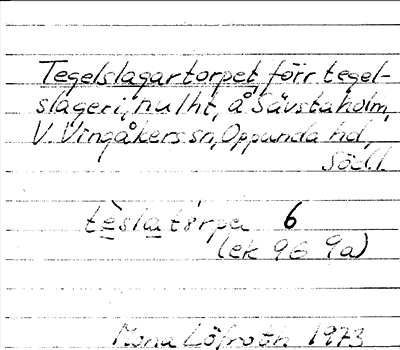 Tegelslagartorpet, förr tegel-
slageri, nu lht, å Sävstaholm,
V. Vingåkers sn, Oppunda hd,
Södl.
tèslatɷrpa 6
(ek 9G 9a)
Mona Löfroth 1973